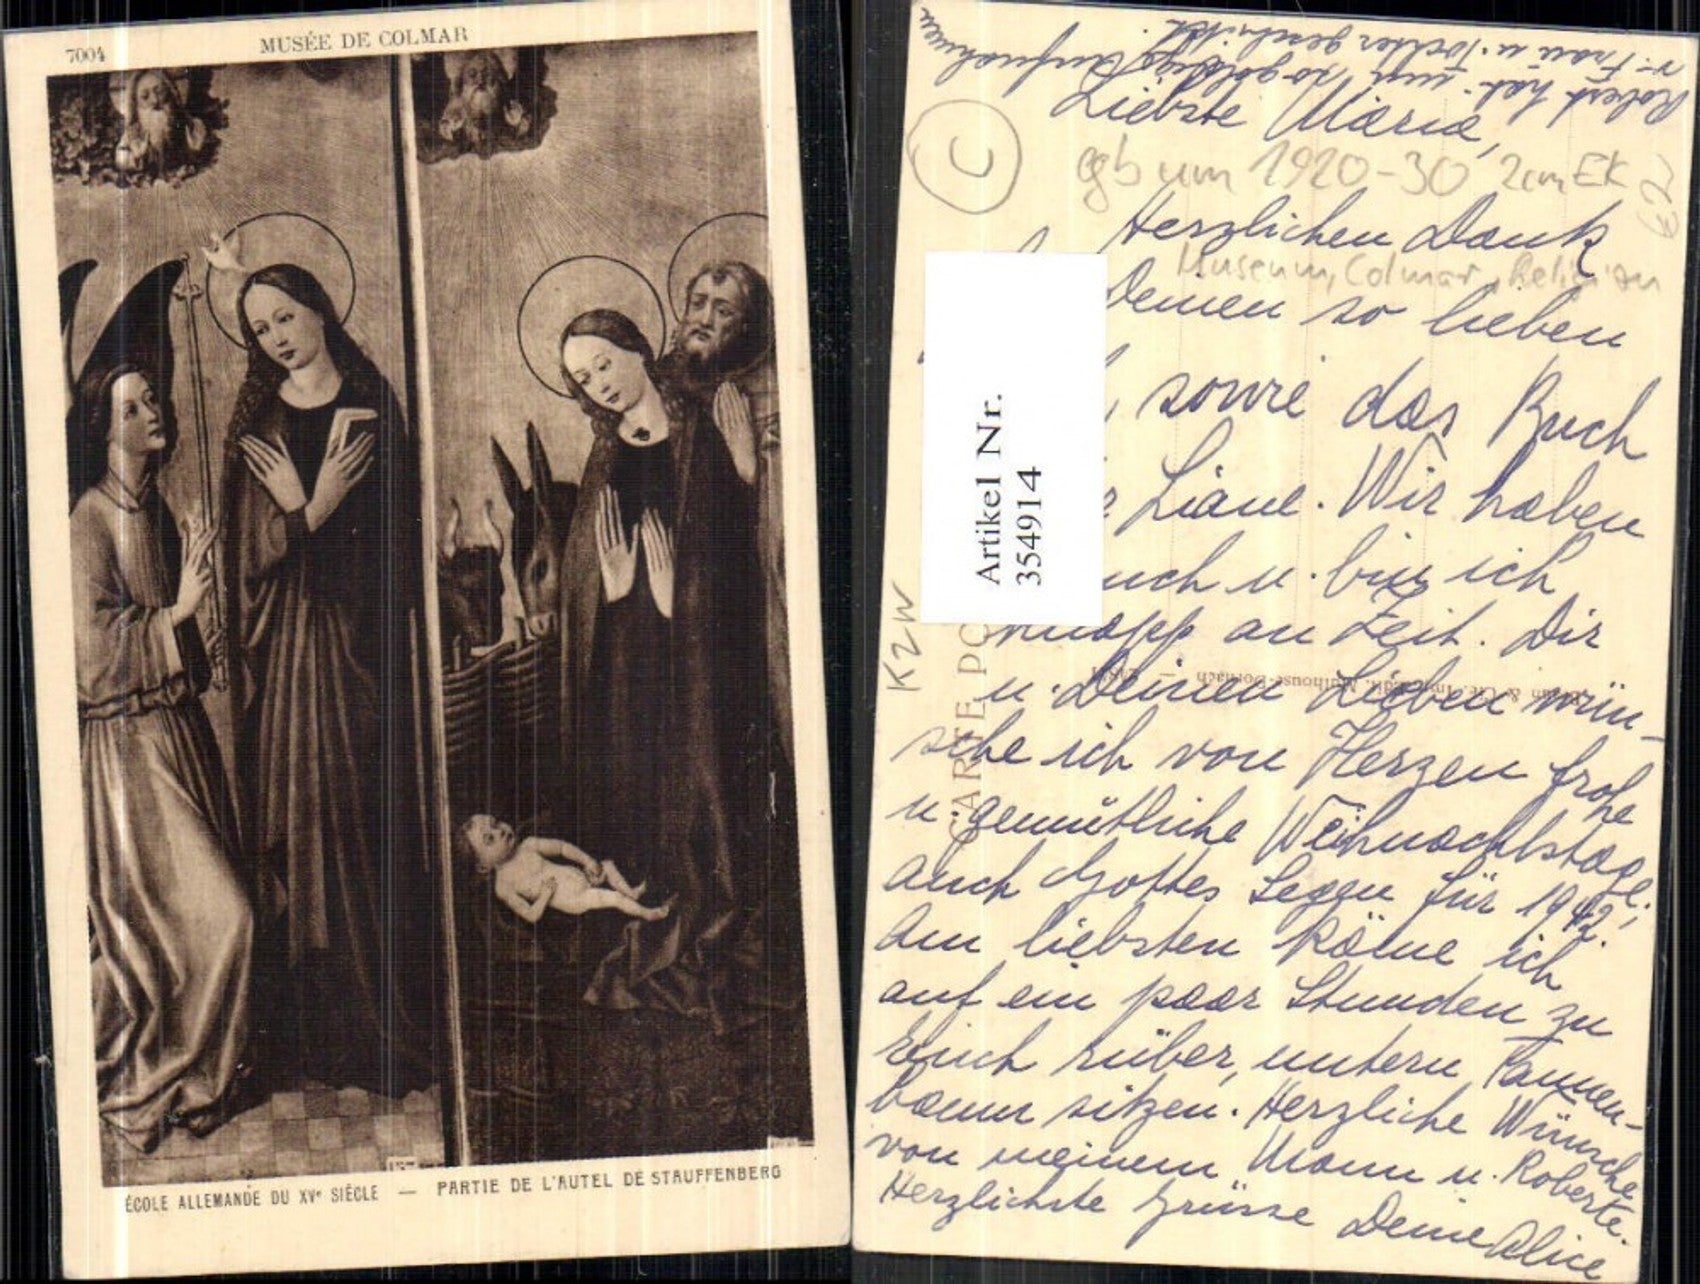 7004
MUSÉE DE COLMAR
ÉCOLE ALLEMANDE DU XVe SIÈCLE — PARTIE DE L'AUTEL DE STAUFFENBERG
Robert hat uns so goldige Aufnahmen
v. Frau u. Tochter geschickt.
Liebste Maria,
C
gb um 1920-30 2cm EK
€2,
Herzlichen Dank
Museum, Colmar, Religion
Deinen so lieben
, sowie das Buch
Liane. Wir haben
uch u. bin ich
knapp an Zeit. Dir
u. Deinen Lieben wün-
sche ich von Herzen frohe
u. gemütliche Weihnachtstage;
auch Gottes Segen für 1942.
Am liebsten käme ich
auf ein paar Stunden zu
Euch rüber, unterm Tannen-
baum sitzen. Herzliche Wünsche
von meinem Mann u. Roberte.
Herzlichste Grüsse Deine Alice
Artikel Nr.
354914
K2W
CARTE PO
& Cie. Imp. Édit. Mulhouse-Dornach